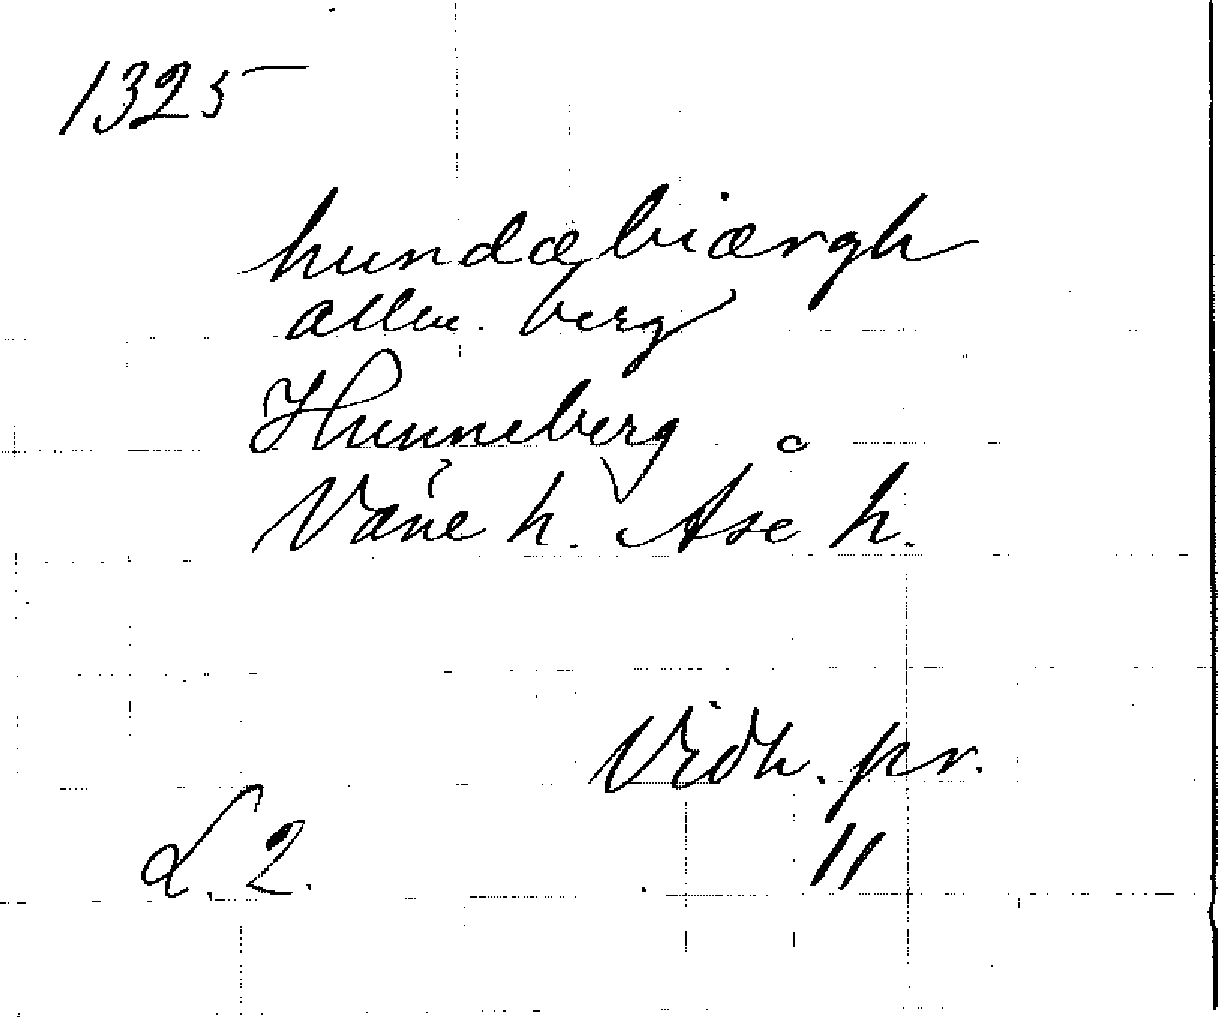 1325
hundæbiærgh
allm. berg
Hunneberg
Väne h. Åse h.
Vidh. pr.
L. 2. 11